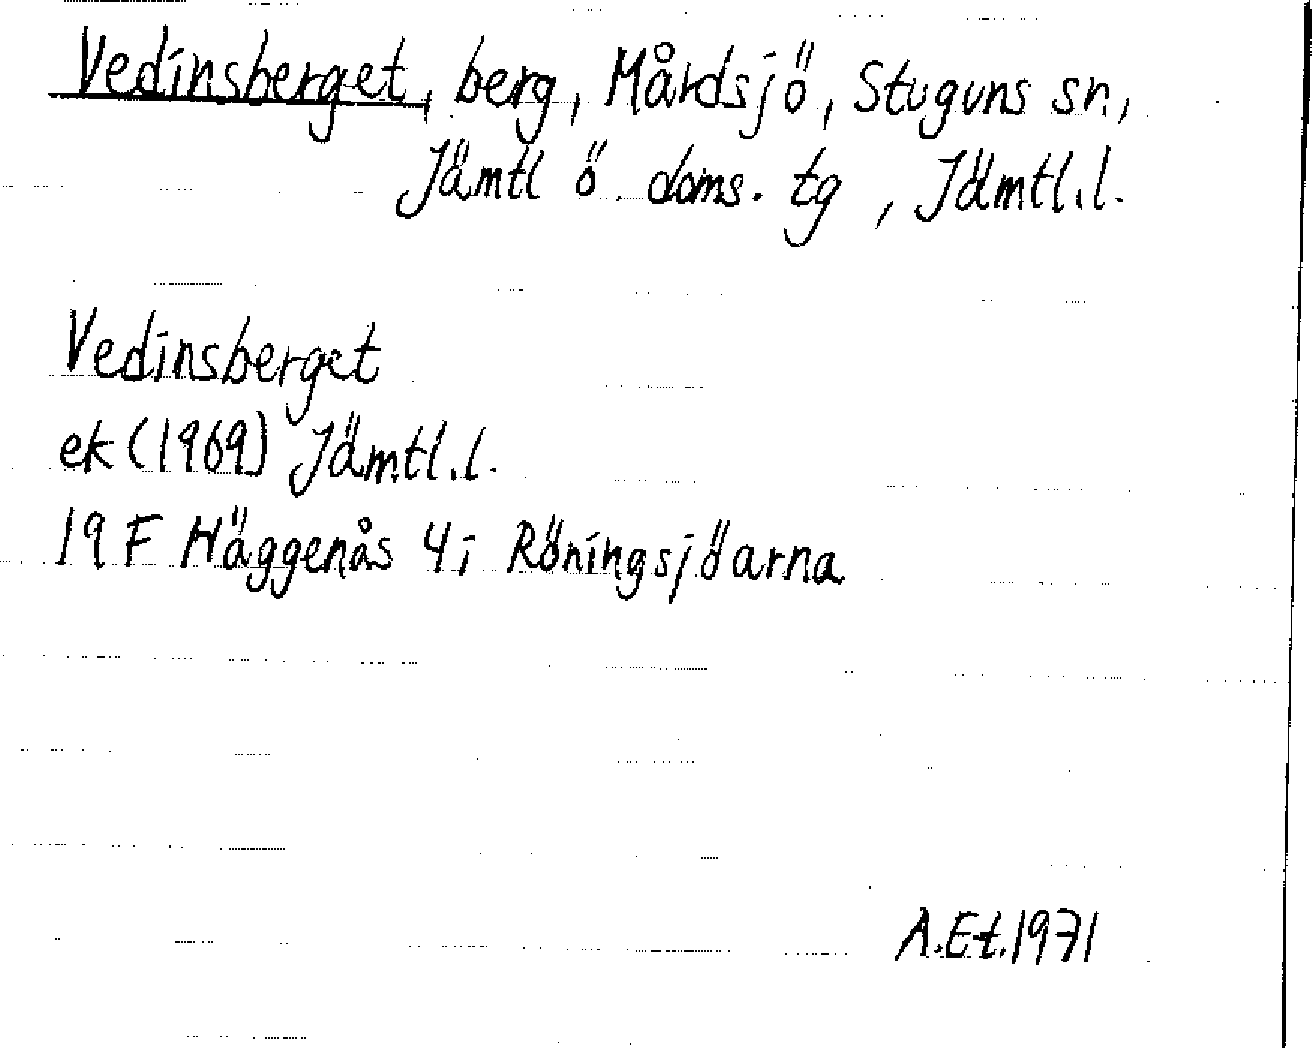 Vedinsberget, berg, Mårdsjö, Stuguns sn,
Jämtl ö doms. tg , Jämtl.l.
Vedinsberget
ek (1969) Jämtl.l.
19 F Häggenås 4i Röningsjöarna
A.Et.1971